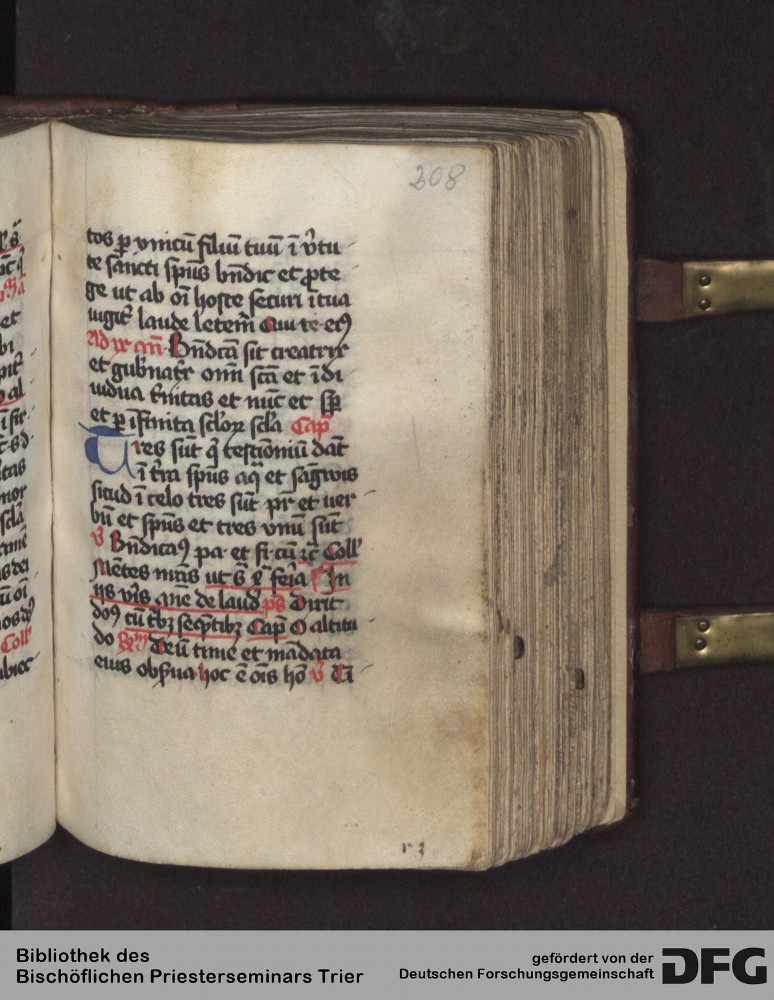 208
tos ꝑ vnicū filiū tuū ī v̄tu
te sancti sp̄us bn̄dic et ꝓte
ge ut ab oī hoste securi ī tua
iugit̉ laude letem̄ Qui te-
Ad Bn̄dcā sit creatrix
et gub̄natx̄ om̄i scā et īdi
uidua t̄nitas et nūc et sp̄
et ꝑ īfinita sclo℞ scla Cap̄
Tres sūt q̄ testimoniū dāt
ī t̄ra sp̄us aq̄ et sāgwis
sicud ī celo tres sūt pr̄ et uer
bū et sp̄us et tres vnū sūt
v̄ Bn̄dicaꝰ pa et fi cū Coll̉
Mētes ut s̄ feria In
de laud ps̄ Dixit
cū Cap̄ O altitu
do Deū time et mādata
eius obs̄ua hoc ē ois hō v̄
r 3
Coll̉
Bibliothek des
Bischöflichen Priesterseminars Trier
gefördert von der
Deutschen Forschungsgemeinschaft
DFG